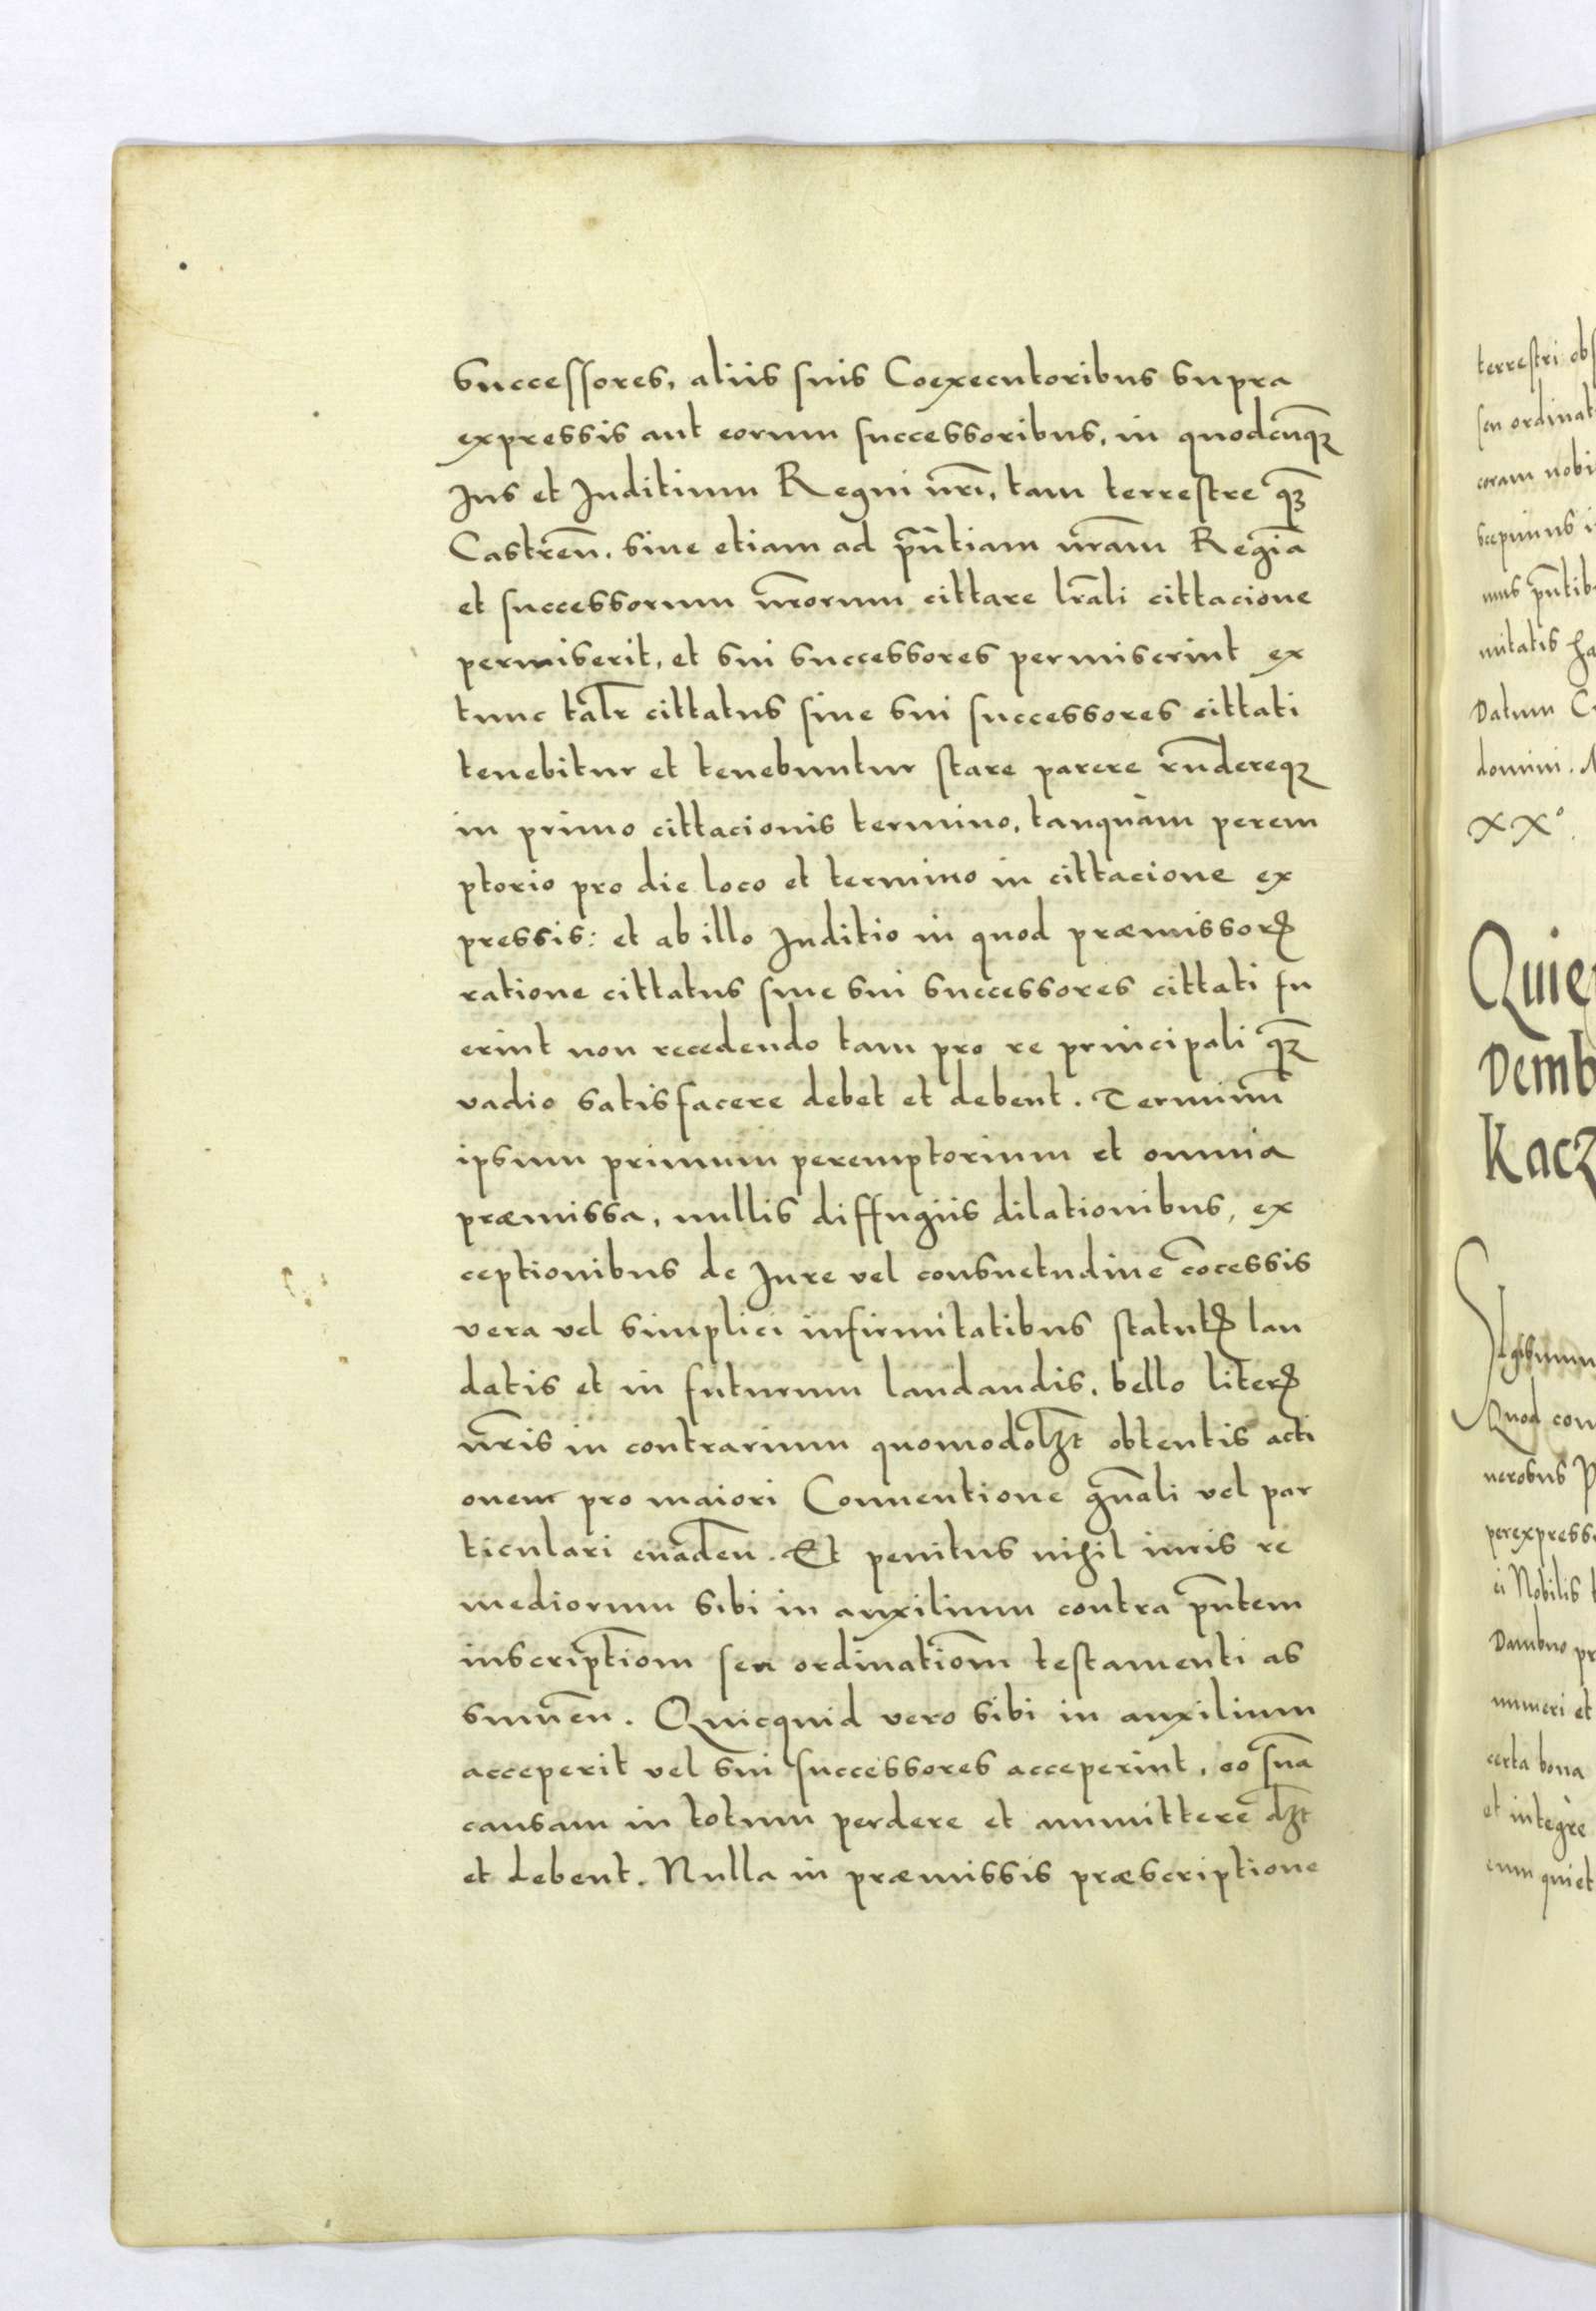 Successores, aliis suis Coexecutoribus supra
expressis aut eorum successoribus, in quodcunq̃
Jus et Juditium Regni nrĩ, tam terrestre q̃
Castreñ. siue etiam ad pñtiam nrãm Regiã
et successorum nrõrum cittare lrãli cittacione
permiserit, et sui successores permiserint ex
tunc talr̃ cittatus siue sui successores cittati
tenebitur et tenebuntur stare parere rñdereqꝫ
in primo cittacionis termino, tanquàm perem
ptorio pro die loco et termino in cittacione ex
pressis: et ab illo Juditio in quod præmissorꝝ
ratione cittatus siue sui successores cittati fu
erint non recedendo tam pro re principali q̃
vadio satisfacere debet et debent. Terminũ
ipsum primum peremptorium et omnia
præmissa, nullis diffugiis dilationibus, ex
ceptionibus de Jure vel consuetudine cõcessis
vera vel simplici infirmitatibus statutꝭ lau
datis et in futurum laudandis, bello literꝭ
nrĩs in contrarium quomodolꝫt obtentis acti
onem pro maiori Conuentione gñali vel par
ticulari euadeñ. Et penitus nihil iuris re
mediorum sibi in auxilium contra pñtem
inscriptiom̃ seu ordinatiom̃ testamenti as
sumeñ. Quicquid vero sibi in auxilium
acceperit vel sui successores acceperint, eo suã
causam in totum perdere et ammittere dꝫt
et debent. Nulla in præmissis præscriptione
terrestri obs
seu ordinat
coram nobi
scepimus i
mus pñtib
nitatis ha
Datum C
domini. M
XX°.
Quie
Demb
Kacz
Quod con
perexpresse
ei Nobilis
Dambno pr
numeri et
certa bona
et integre
cum quiet